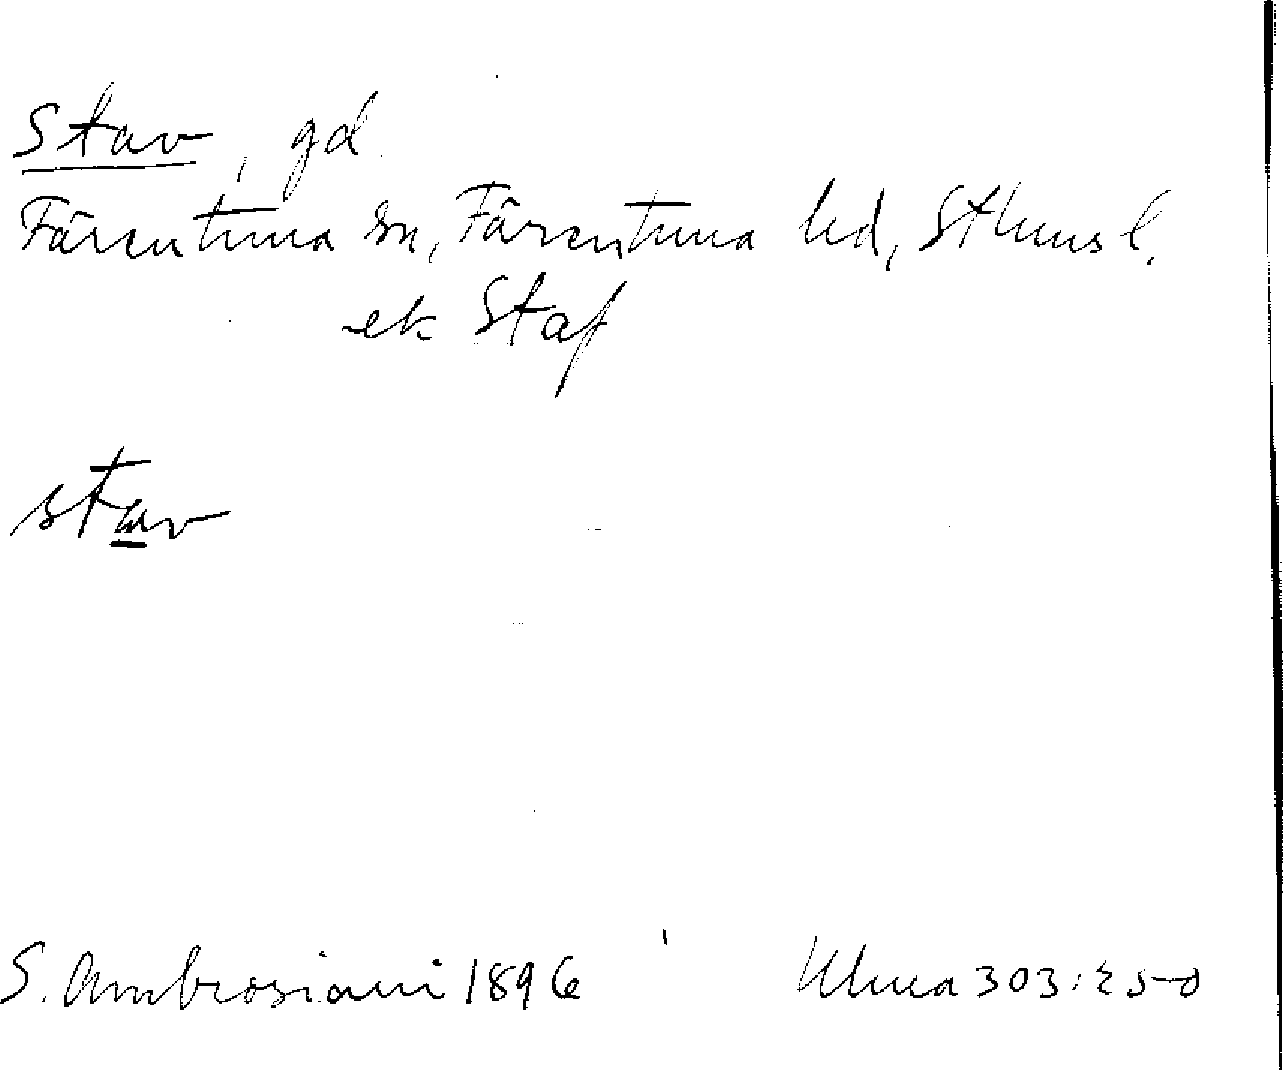 Stav, gd
Färentuna sn, Färentuna hd, Sthms l.
ek Staf
stav
S. Ambrosiani 1896 Ulma 303:250